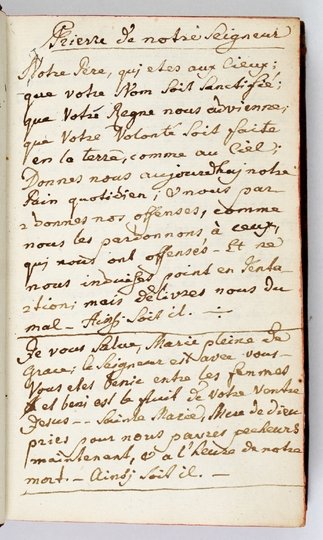 Prierre de notre Seigneur
Notre Pere, qui etes aux Cieux;
que votre Nom soit Sanctifié;
que Votre Regne nous advienne;
que Votre Volonté soit faite
en la terre, comme au Ciel;
Donnes nous aujourdhuy notre
Pain quotidien; & nous par-
donnes nos offenses, comme
nous les pardonnons à ceux,
qui nous ont offensés - Et ne
nous induises point en Tenta-
tion; mais delivres nous du
mal - Ainsj soit il. -
Je vous salue, Marie pleine de
Grace; le Seigneur est avec vous -
Vous etes benie entre les femmes
& et beni est le fruit de votre Ventre
Jesus - - Sainte Marie, Mere de dieu
pries pour nous pauvres pecheurs
maintenant, & a l'heure de notre
mort. - Ainsj soit il. -